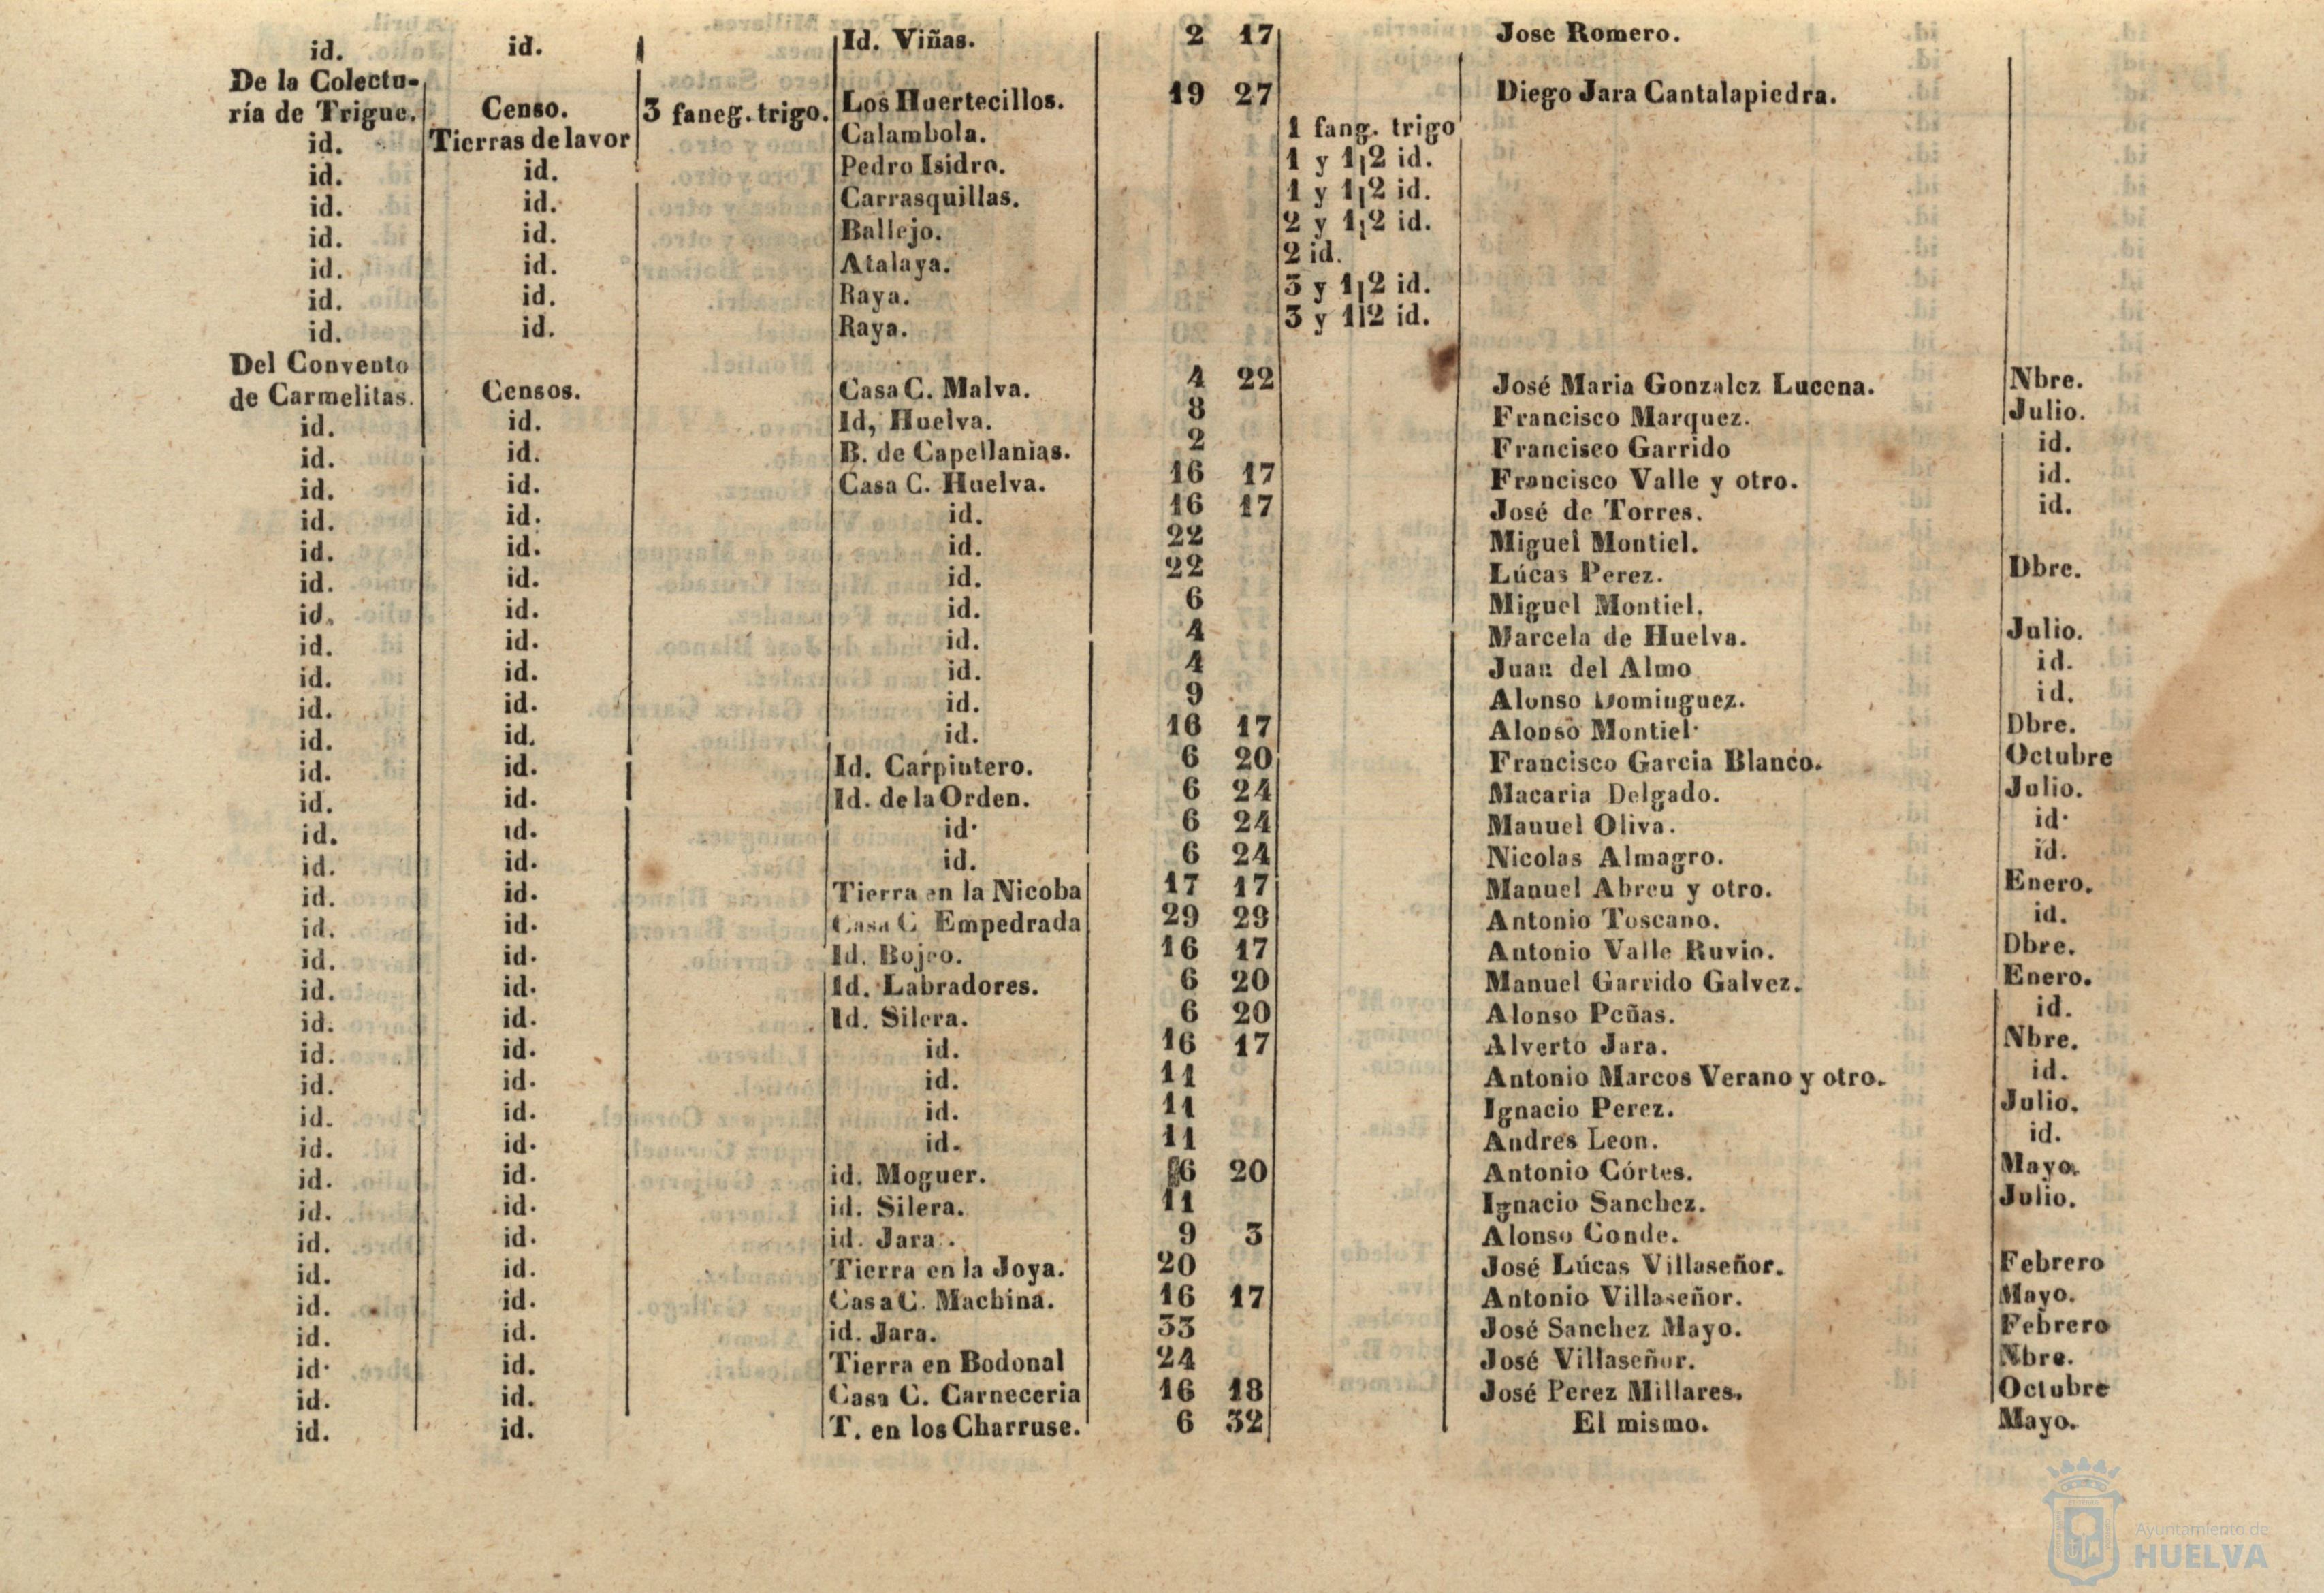 id. id. Id. Viñas. 2 17 Jose Romero.
De la Colectu-
ría de Trigue. Censo. 3 faneg. trigo. Los Huertecillos. 19 27 Diego Jara Cantalapiedra.
id. Tierras de lavor Calambola. 1 fang. trigo
id. id. Pedro Isidro. 1 y 1|2 id.
id. id. Carrasquillas. 1 y 1|2 id.
id. id. Ballejo. 2 y 1|2 id.
id. id. Atalaya. 2 id.
id. id. Raya. 3 y 1|2 id.
id. id. Raya. 3 y 1|2 id.
Del Convento
de Carmelitas. Censos. Casa C. Malva. 4 22 José Maria Gonzalez Lucena. Nbre.
id. id. Id, Huelva. 8 Francisco Marquez. Julio.
id. id. B. de Capellanias. 2 Francisco Garrido id.
id. id. Casa C. Huelva. 16 17 Francisco Valle y otro. id.
id. id. id. 16 17 José de Torres. id.
id. id. id. 22 Miguel Montiel.
id. id. id. 22 Lúcas Perez. Dbre.
id. id. id. 6 Miguel Montiel.
id. id. id. 4 Marcela de Huelva. Julio.
id. id. id. 4 Juan del Almo id.
id. id. id. 9 Alonso Dominguez. id.
id. id. id. 16 17 Alonso Montiel. Dbre.
id. id. Id. Carpintero. 6 20 Francisco Garcia Blanco. Octubre
id. id. Id. de la Orden. 6 24 Macaria Delgado. Julio.
id. id. id. 6 24 Manuel Oliva. id.
id. id. id. 6 24 Nicolas Almagro. id.
id. id. Tierra en la Nicoba 17 17 Manuel Abreu y otro. Enero.
id. id. Casa C Empedrada 29 29 Antonio Toscano. id.
id. id. Id. Bojeo. 16 17 Antonio Valle Ruvio. Dbre.
id. id. Id. Labradores. 6 20 Manuel Garrido Galvez. Enero.
id. id. Id. Silera. 6 20 Alonso Peñas. id.
id. id. id. 16 17 Alverto Jara. Nbre.
id. id. id. 11 Antonio Marcos Verano y otro. id.
id. id. id. 11 Ignacio Perez. Julio.
id. id. id. 11 Andres Leon. id.
id. id. id. Moguer. 6 20 Antonio Córtes. Mayo.
id. id. id. Silera. 11 Ignacio Sanchez. Julio.
id. id. id. Jara. 9 3 Alonso Conde.
id. id. Tierra en la Joya. 20 José Lúcas Villaseñor. Febrero
id. id. Casa C. Machina. 16 17 Antonio Villaseñor. Mayo.
id. id. id. Jara. 33 José Sanchez Mayo. Febrero
id. id. Tierra en Bodonal 24 José Villaseñor. Nbre.
id. id. Casa C. Carneceria 16 18 José Perez Millares. Octubre
id. id. T. en los Charruse. 6 32 El mismo. Mayo.
Ayuntamiento de
HUELVA